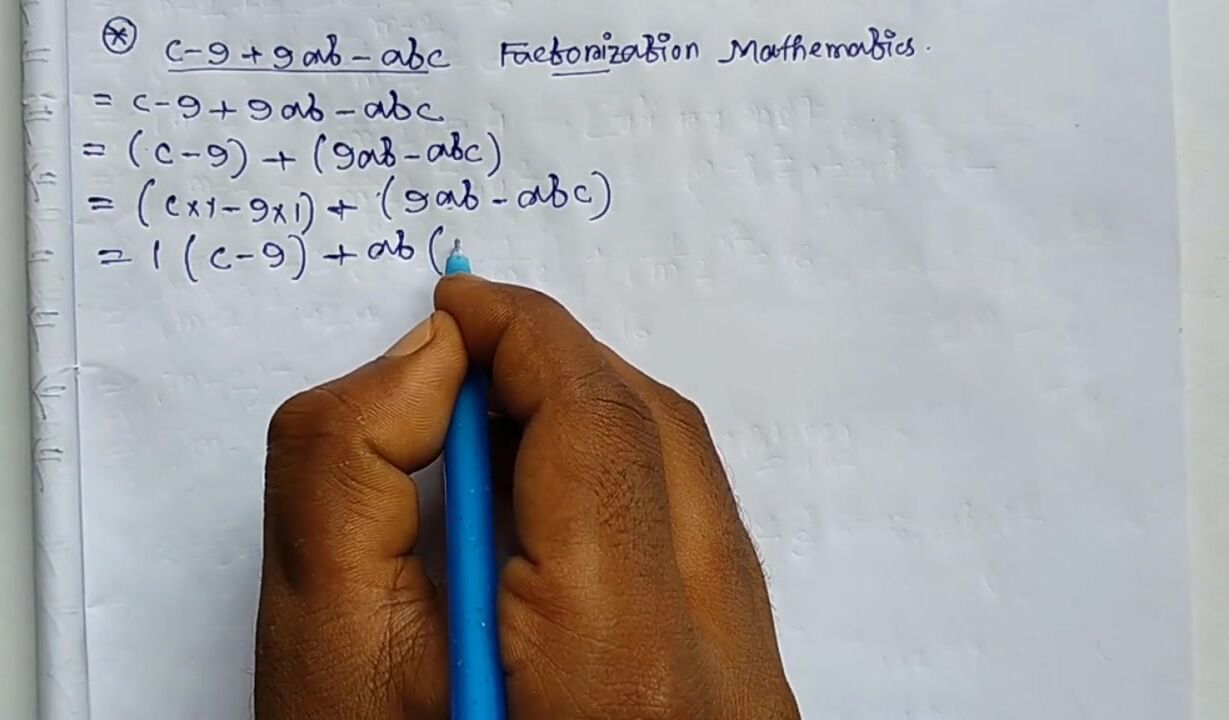 ⊛ c-9+9ab-abc Factorization Mathematics.
= c-9+9ab-abc
= (c-9)+(9ab-abc)
= (c×1-9×1)+(9ab-abc)
= 1(c-9)+ab(